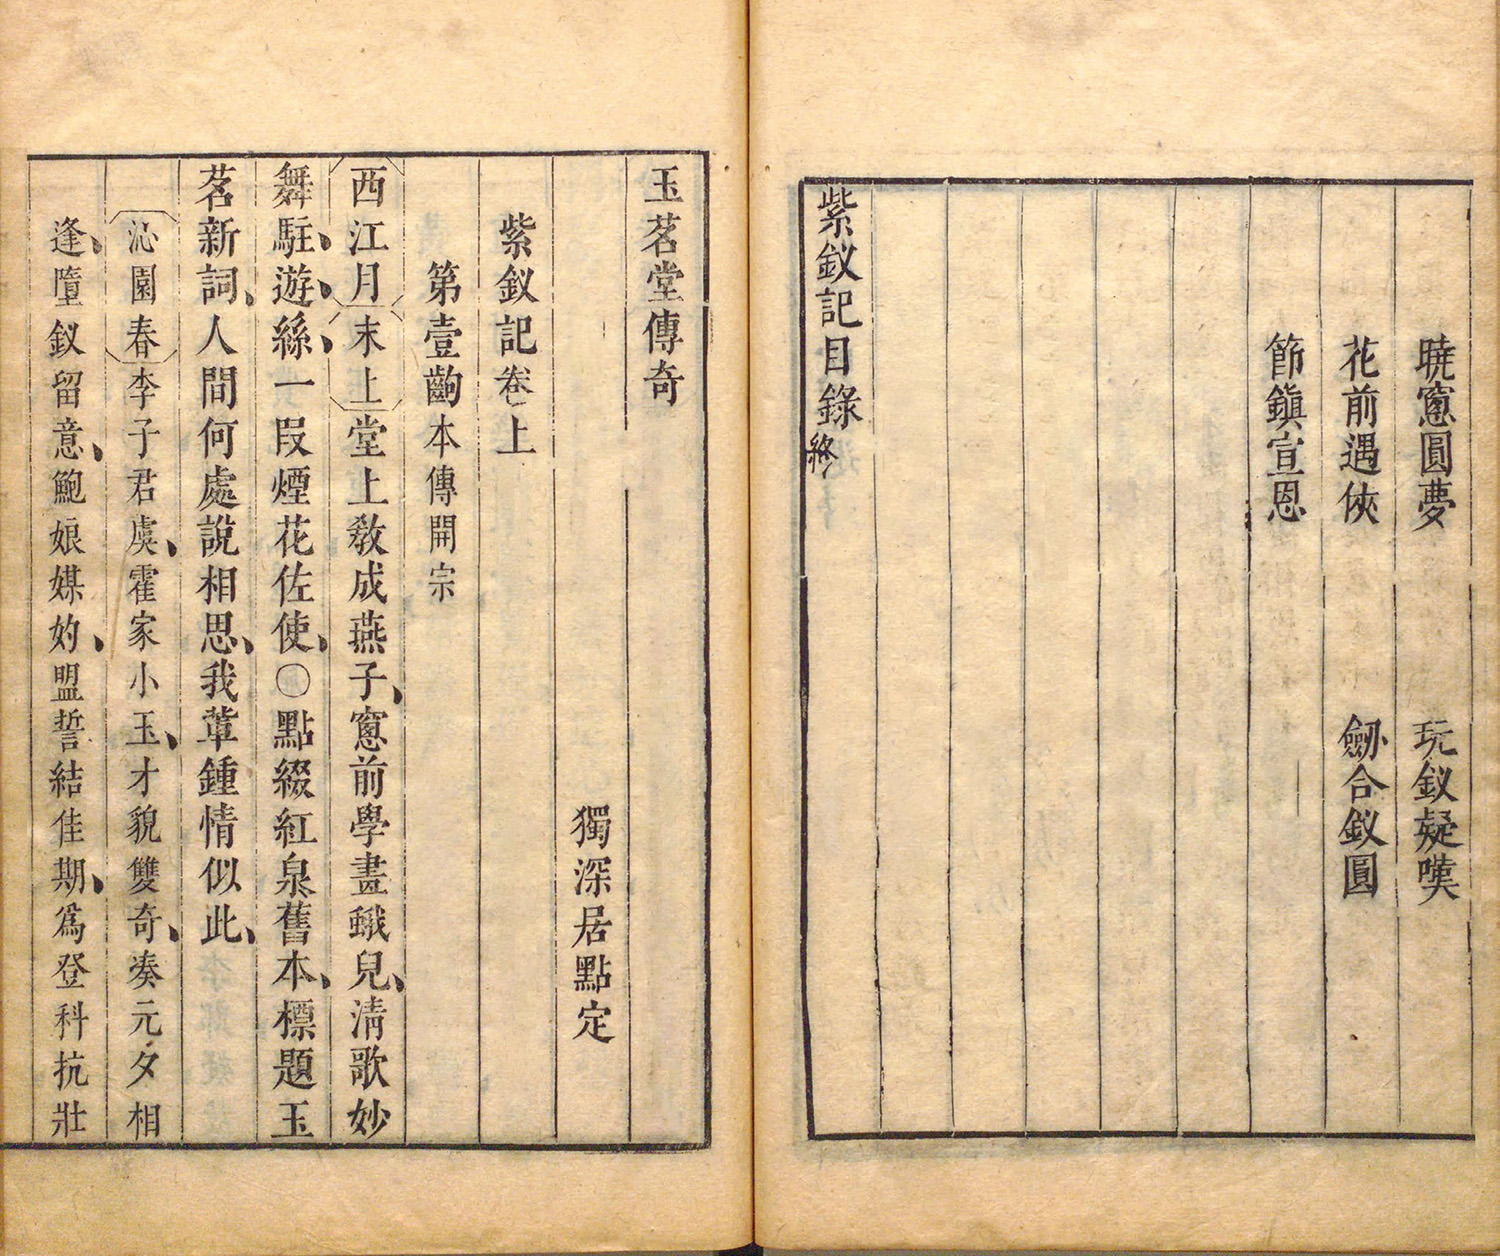 曉窻圓夢　玩釵疑嘆
花前遇俠　劒合釵圓
節鎮宣恩
紫釵記目錄終
玉茗堂傳奇
獨深居點定
紫釵記卷上
第壹齣本傳開宗
西江月末上堂上敎成燕子、窻前學畫蛾兒、淸歌妙
舞、駐遊、絲、一段煙花佐使、○點綴紅泉舊本、標題玉
茗新詞、人間何處說相思、我輩鍾情似此、
沁園春李子君虞、霍家小玉、才貌雙奇、凑元夕相
逢、墮釵留意、鮑娘媒妁、盟誓結佳期、爲登科抗壯